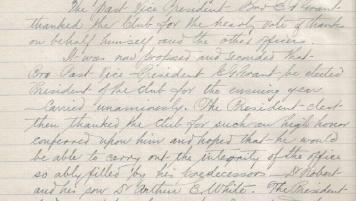 The Past Vice President - Bro E G Grant
thanked the Club for the hearty vote of thanks
on behalf himself and the other officers.
It was now proposed and seconded that
Bro Past Vice-President E G Grant be elected
President of the Club for the ensuing year
- Carried unanimously. The President-elect
then thanked the Club for such an high honor
conferred upon him and hoped that he would
be able to carry out the integrity of the office
so ably filled by his predecessors - Dr Robert
and his son Dr Arthur E. White. The President